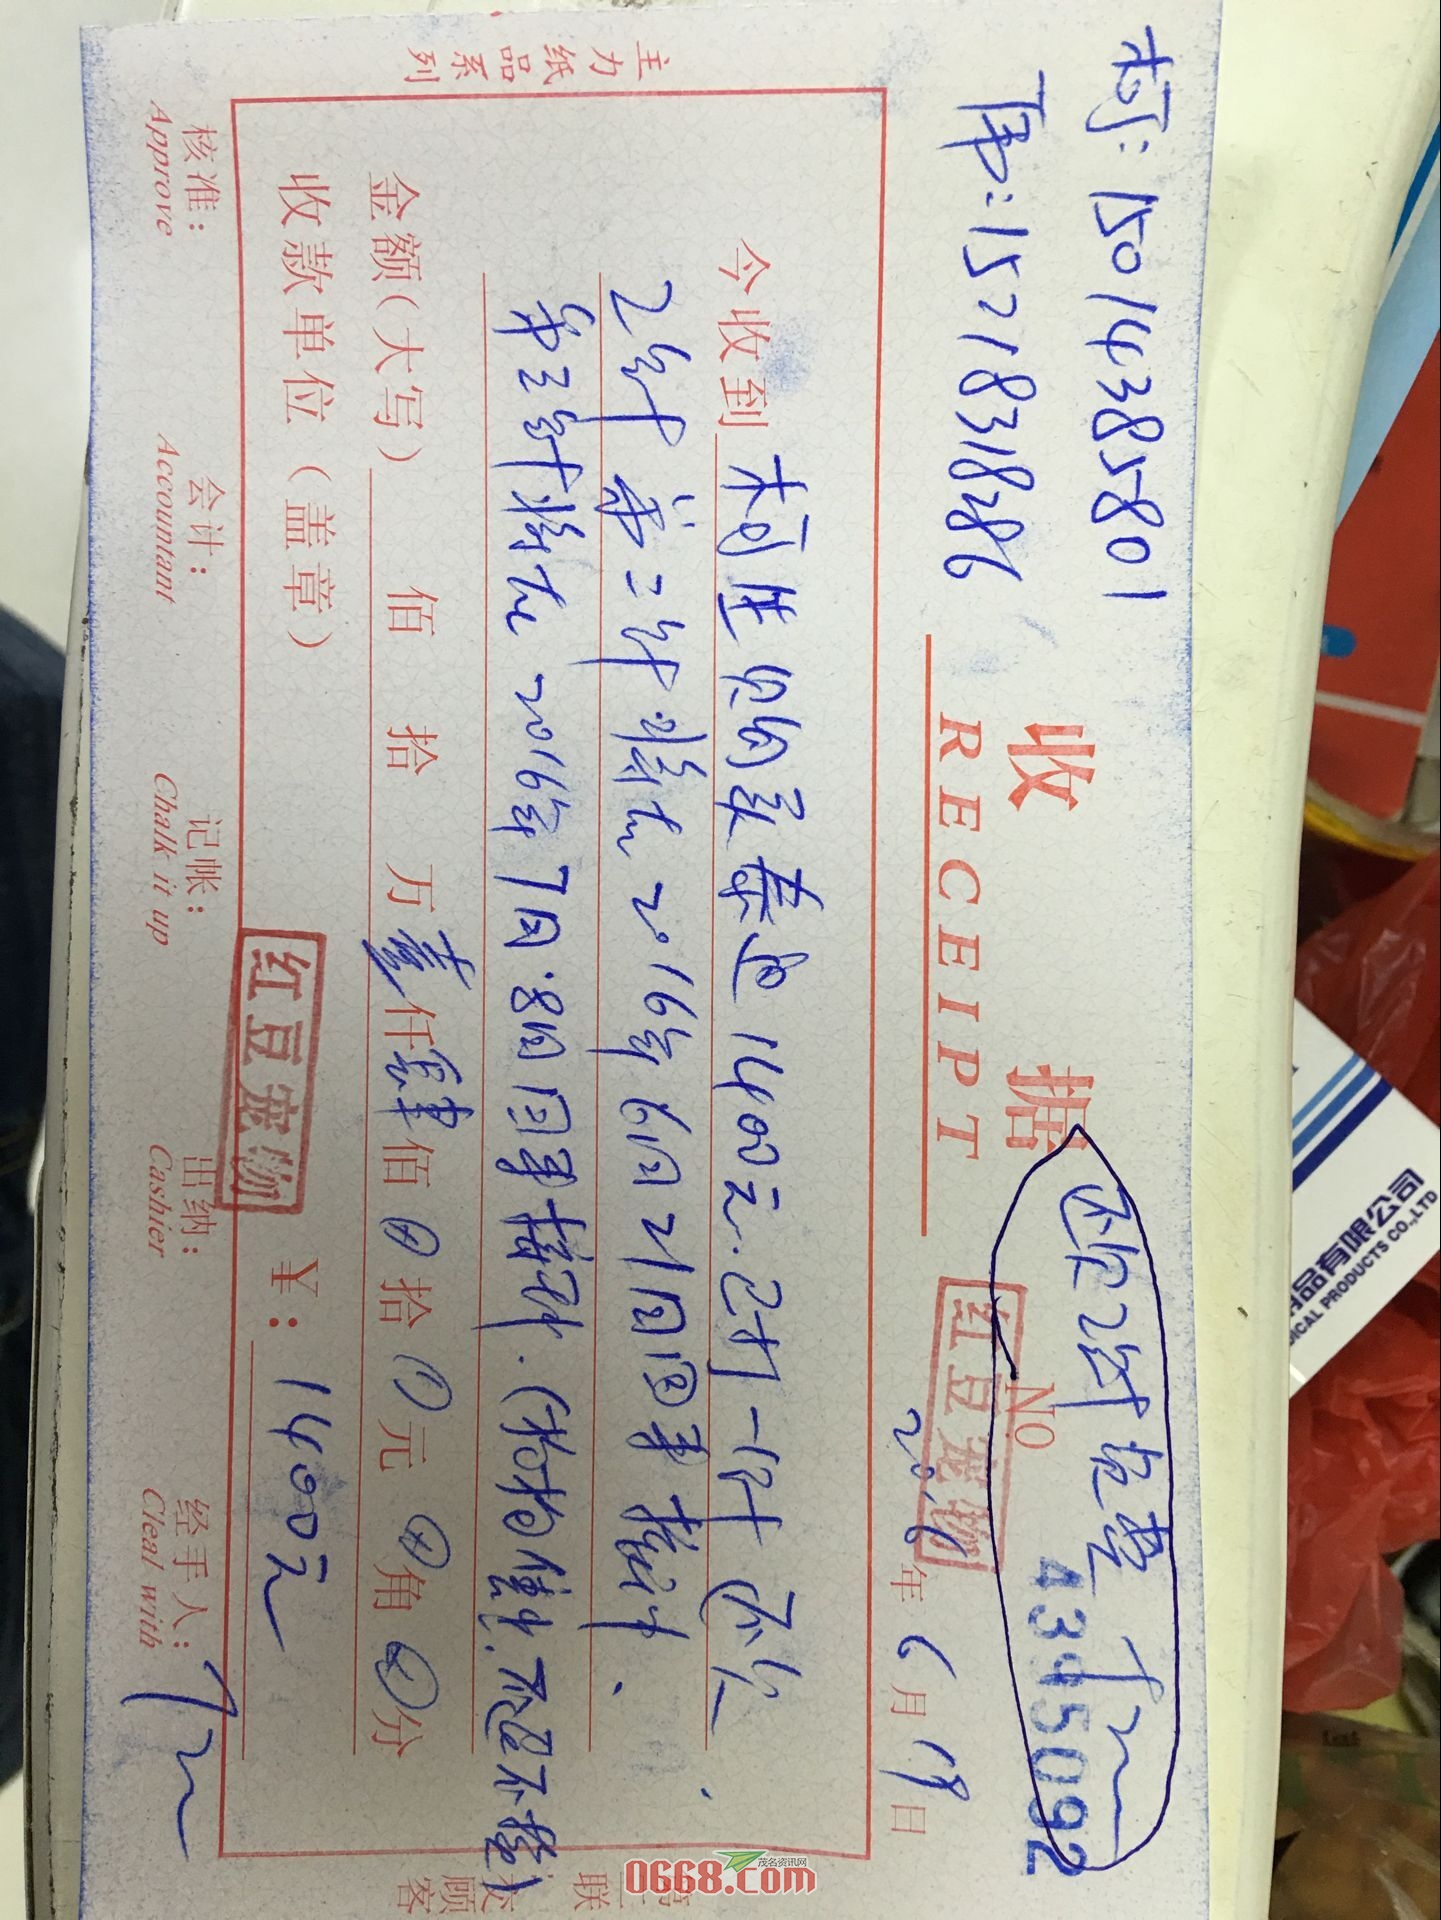 柯: 15014385801
陈: 15218318286
收 据
RECEIPT
还欠2针免费
No 4345092
红豆宠物
2016年6月19日
今收到 柯生购买泰迪1400元.已打一针 还欠
2针 第二针.将在2016年6月21日回来接种.
第三针将在2016年7月.8日回来接种.(狗狗健康.不退不换)
金额(大写) 佰 拾 万 壹仟肆佰 拾 元 角 分
收款单位(盖章) 红豆宠物 ¥: 1400元
核准: 会计: 记帐: 出纳: 经手人:
Approve Accountant Chalk it up Cashier Cleal with
主力纸品系列
第二联 交顾客
品有限公司
ICAL PRODUCTS CO.,LTD
茂名资讯网
0668.com